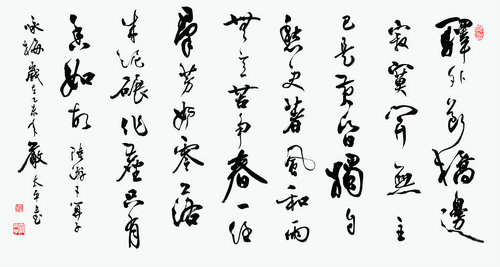 驛外断橋邊
寂寞開無主
已是黄昏獨自
愁更著風和雨
無意苦争春一任
羣芳妒零落
成泥碾作塵只有
香如故 陸游卜算子
咏梅 歲在乙未年 嚴太平書